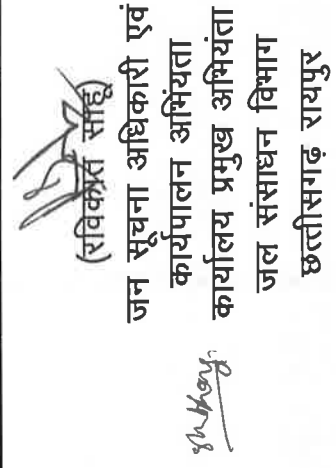 (रविकांत साहू)
जन सूचना अधिकारी एवं
कार्यपालन अभियंता
कार्यालय प्रमुख अभियंता
जल संसाधन विभाग
छत्तीसगढ़ रायपुर